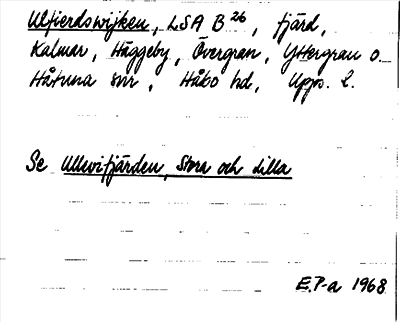 Ulfierdswijken, LSA B 26, fjärd,
Kalmar, Häggeby, Övergran, Yttergran o.
Håtuna snr, Håbo hd, Upps. l.
Se Ullevifjärden, Stora och Lilla
E.P-a 1968